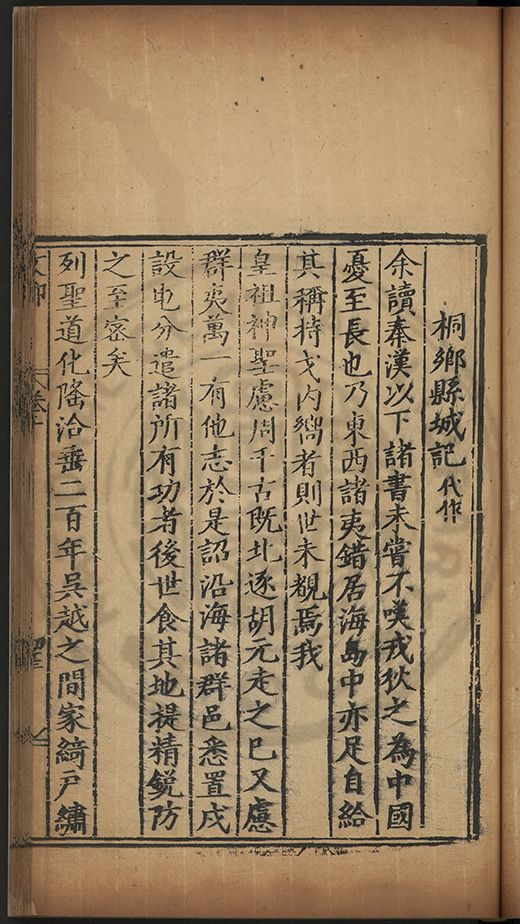 桐鄉縣城記代作
余讀秦漢以下諸書未嘗不嘆戎狄之為中國
憂至長也乃東西諸夷錯居海島中亦足自給
其稱持戈內嚮者則世未覩焉我
皇祖神聖慮周千古既北逐胡元走之已又慮
群夷萬一有他志於是詔沿海諸群邑悉置戍
設屯分遣諸所有功者後世食其地禔精銳防
之至密矣
列聖道化隆洽垂二百年吳越之間家綺戶繡